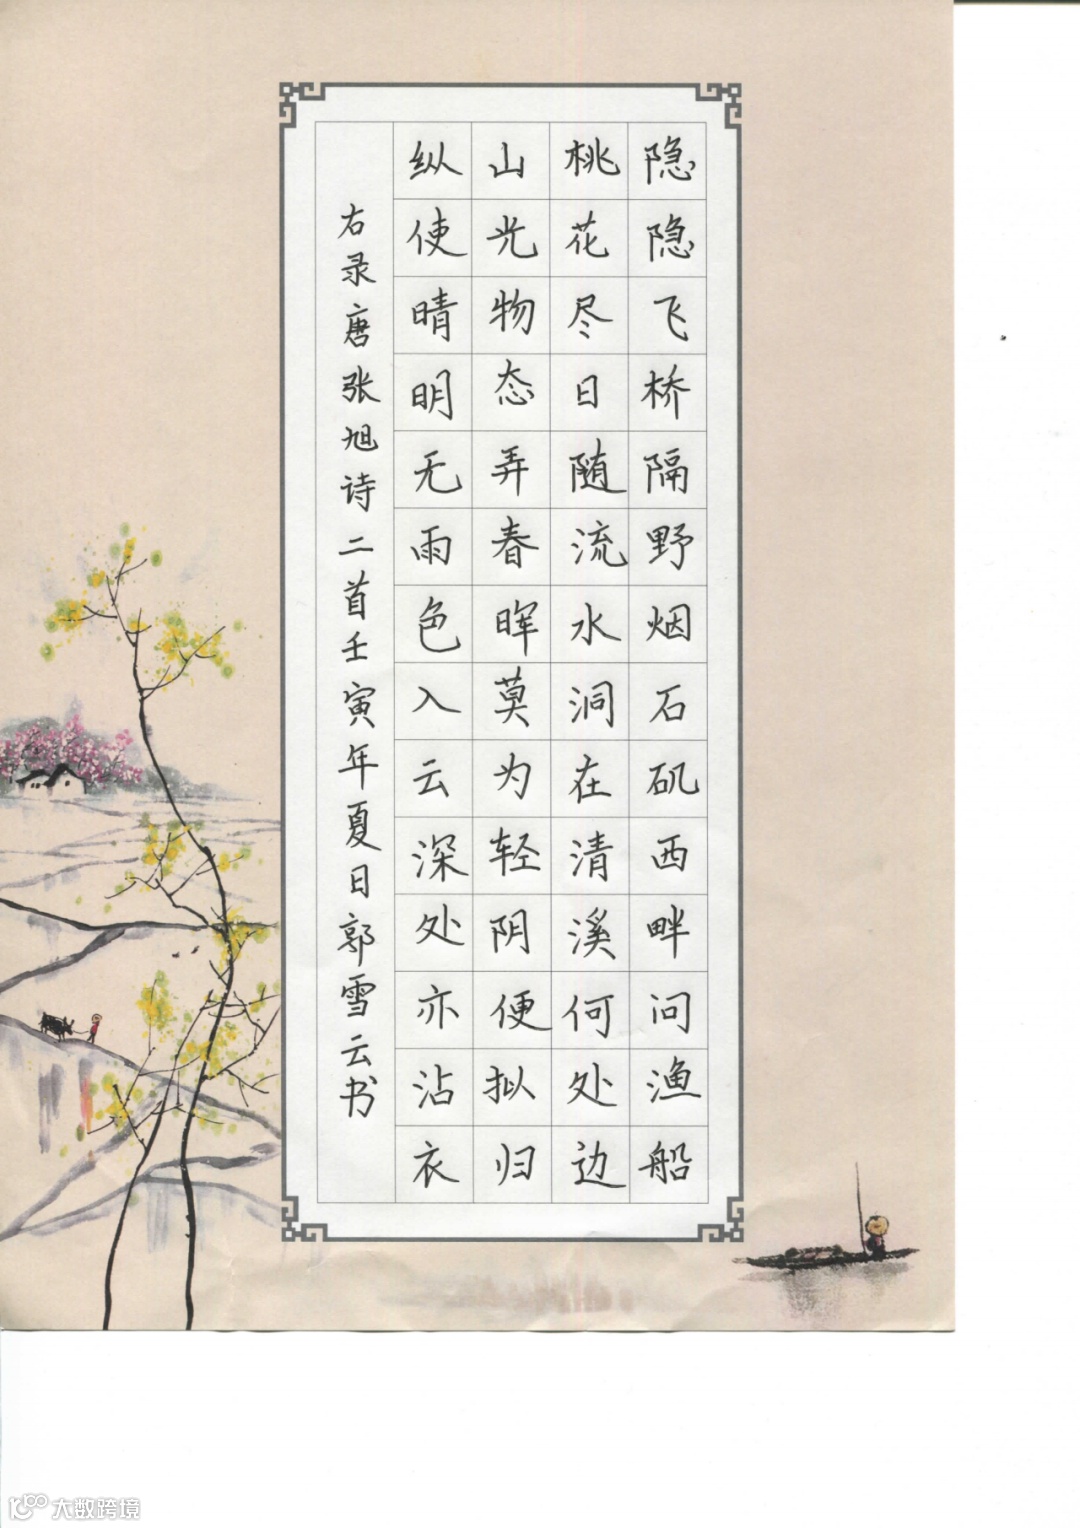 隐隐飞桥隔野烟石矶西畔问渔船
桃花尽日随流水洞在清溪何处边
山光物态弄春晖莫为轻阴便拟归
纵使晴明无雨色入云深处亦沾衣
右录唐张旭诗二首壬寅年夏日郭雪云书
大数跨境